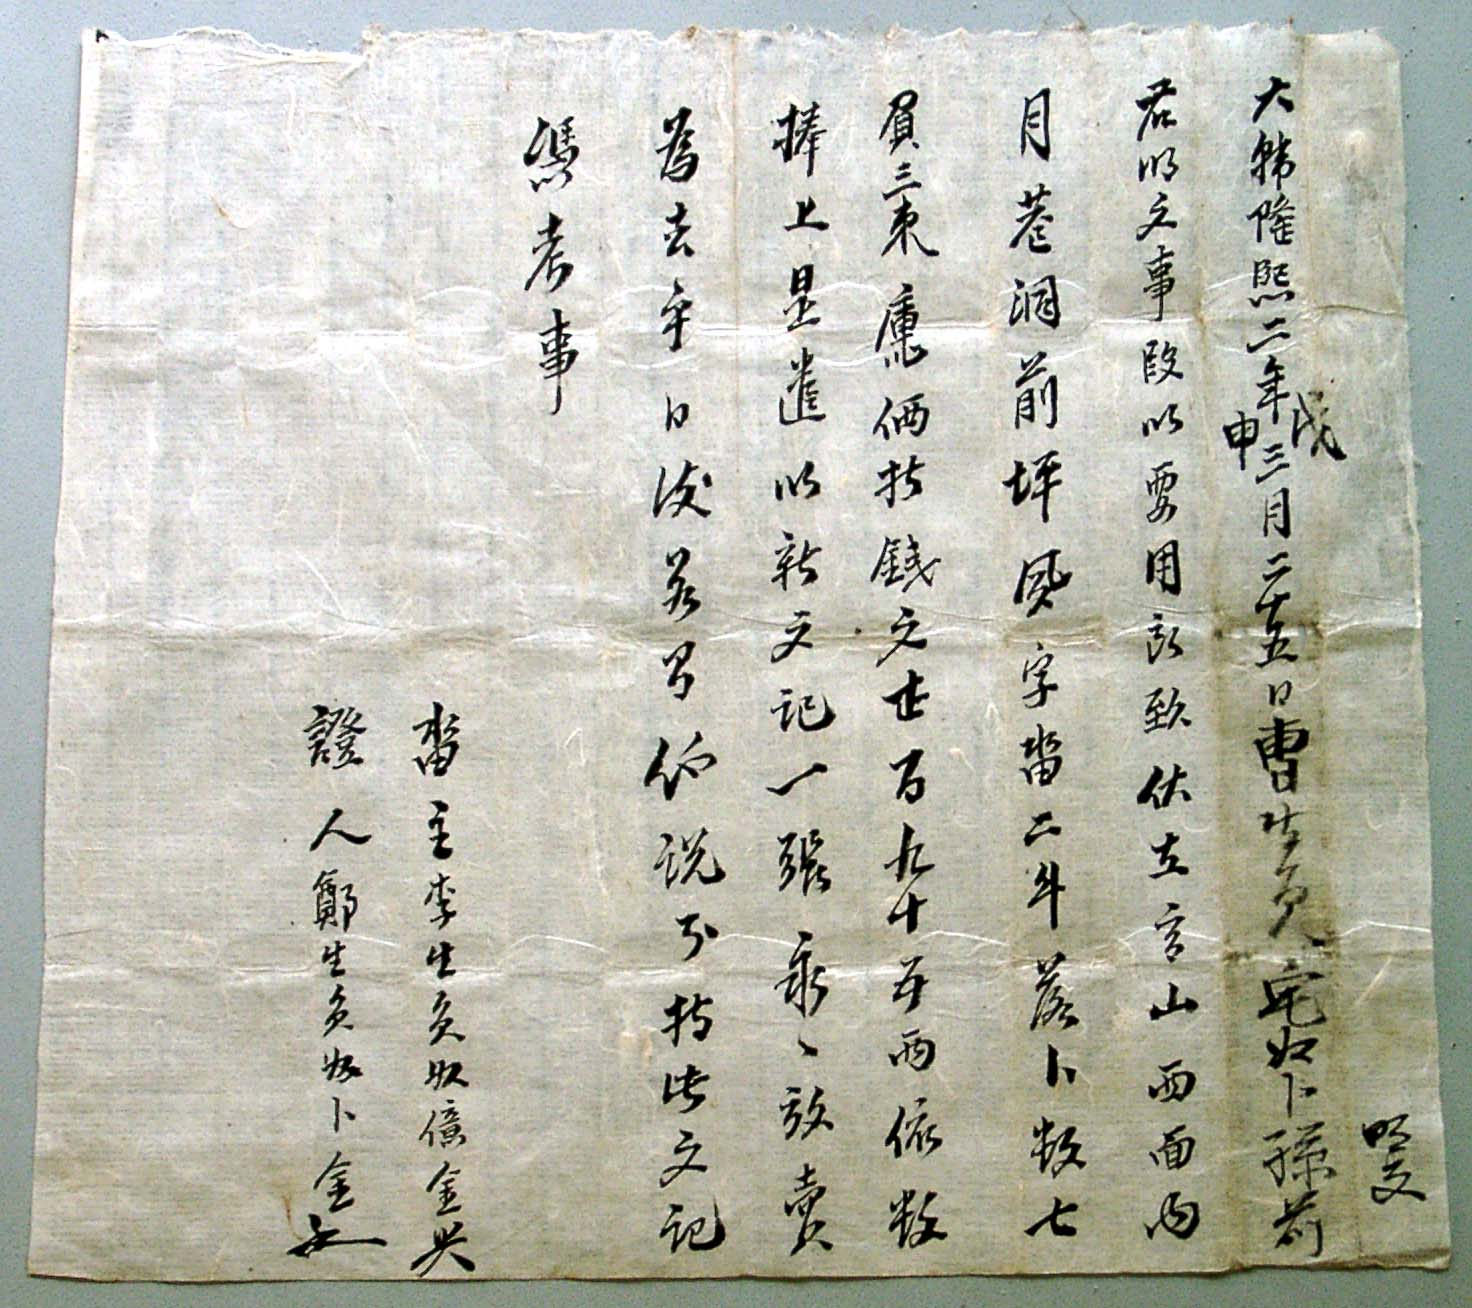 大韓隆熙二年戊申三月二十五日曺生員宅奴卜孫前
明文
右明文事段以要用所致伏在言山西面內
月巷洞前坪 字畓二斗落卜數七
負三束廤価折錢文 百九十五兩依數
捧上是遣以新文記一張永、放賣
爲去乎日後若有 說 持此文記
憑考事
畓主李生員奴億金
證人鄭生員奴卜金